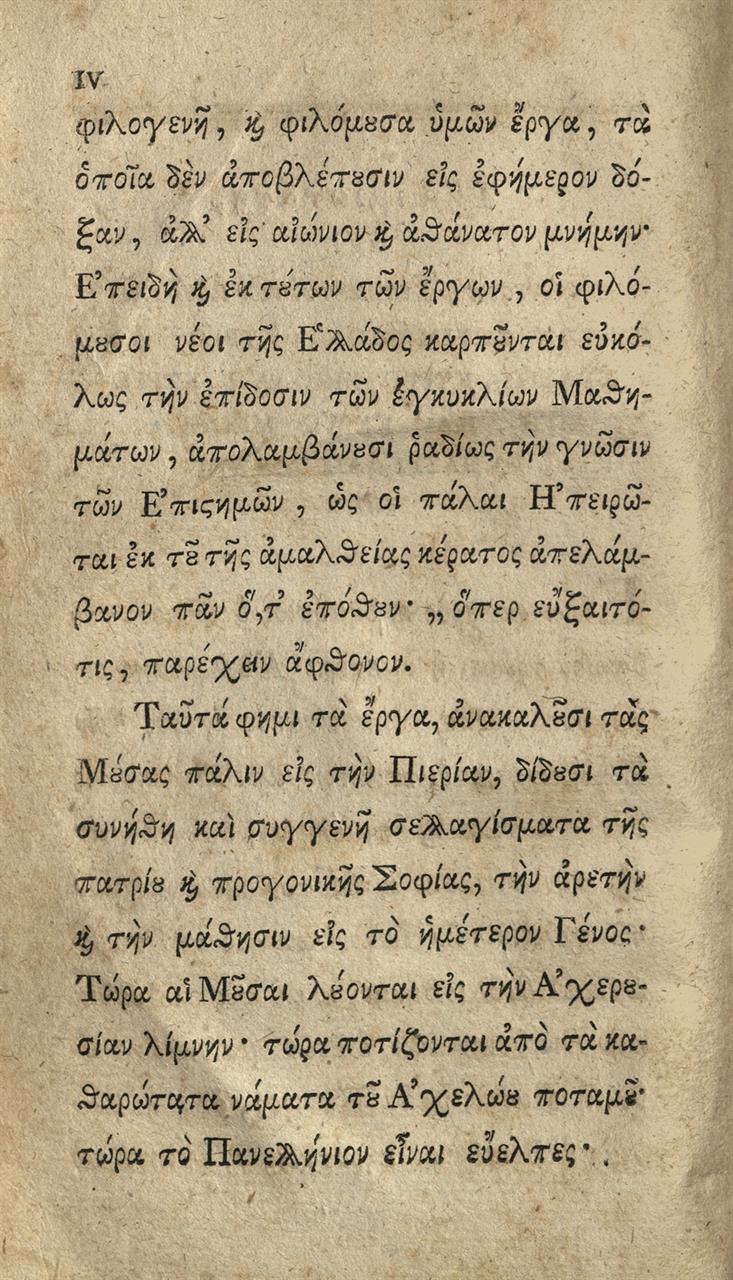 IV
φιλογενῆ, ϗ φιλόμȣσα ὑμῶν ἔργα, τὰ
ὁποῖα δὲν ἀποβλέπȣσιν εἰς ἐφήμερον δό-
ξαν, ἀλλ' εἰς αἰώνιον ϗ ἀθάνατον μνήμην·
Ἐπειδὴ ϗ ἐκ τȣ́των τῶν ἔργων, οἱ φιλό-
μȣσοι νέοι τῆς Ἑλλάδος καρπȣ͂νται εὐκό-
λως τὴν ἐπίδοσιν τῶν ἐγκυκλίων Μαθη-
μάτων, ἀπολαμβάνȣσι ῥαδίως τὴν γνῶσιν
τῶν Ἐπιςημῶν, ὡς οἱ πάλαι Ἠπειρῶ-
ται ἐκ τȣ͂ τῆς ἀμαλθείας κέρατος ἀπελάμ-
βανον πᾶν ὅ,τ' ἐπόθȣν· „ ὅπερ εὔξαιτό-
τις, παρέχειν ἄφθονον.
Ταῦτά φημι τὰ ἔργα, ἀνακαλȣ͂σι τὰς
Μȣ́σας πάλιν εἰς τὴν Πιερίαν, δίδȣσι τὰ
συνήθη καὶ συγγενῆ σελλαγίσματα τῆς
πατρίȣ ϗ προγονικῆς Σοφίας, τὴν ἀρετὴν
ϗ τὴν μάθησιν εἰς τὸ ἡμέτερον Γένος·
Τώρα αἱ Μȣ͂σαι λȣ́ονται εἰς τὴν Ἀχερȣ-
σίαν λίμνην· τώρα ποτίζονται ἀπὸ τὰ κα-
θαρώτατα νάματα τȣ͂ Ἀχελώȣ ποταμȣ͂·
τώρα τὸ Πανελλήνιον εἶναι εὔελπες·